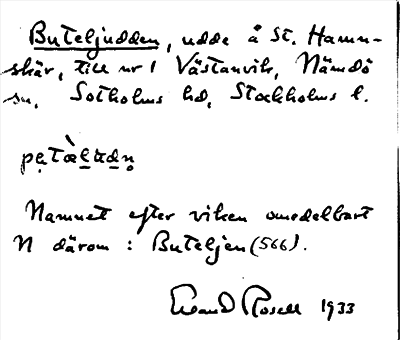 Buteljudden, udde å St. Hamn-
skär, till nr 1 Västanvik, Nämdö
sn, Sotholms hd, Stockholms l.
Namnet efter viken omedelbart
N därom : Buteljen (566).
Erland Rosell 1933